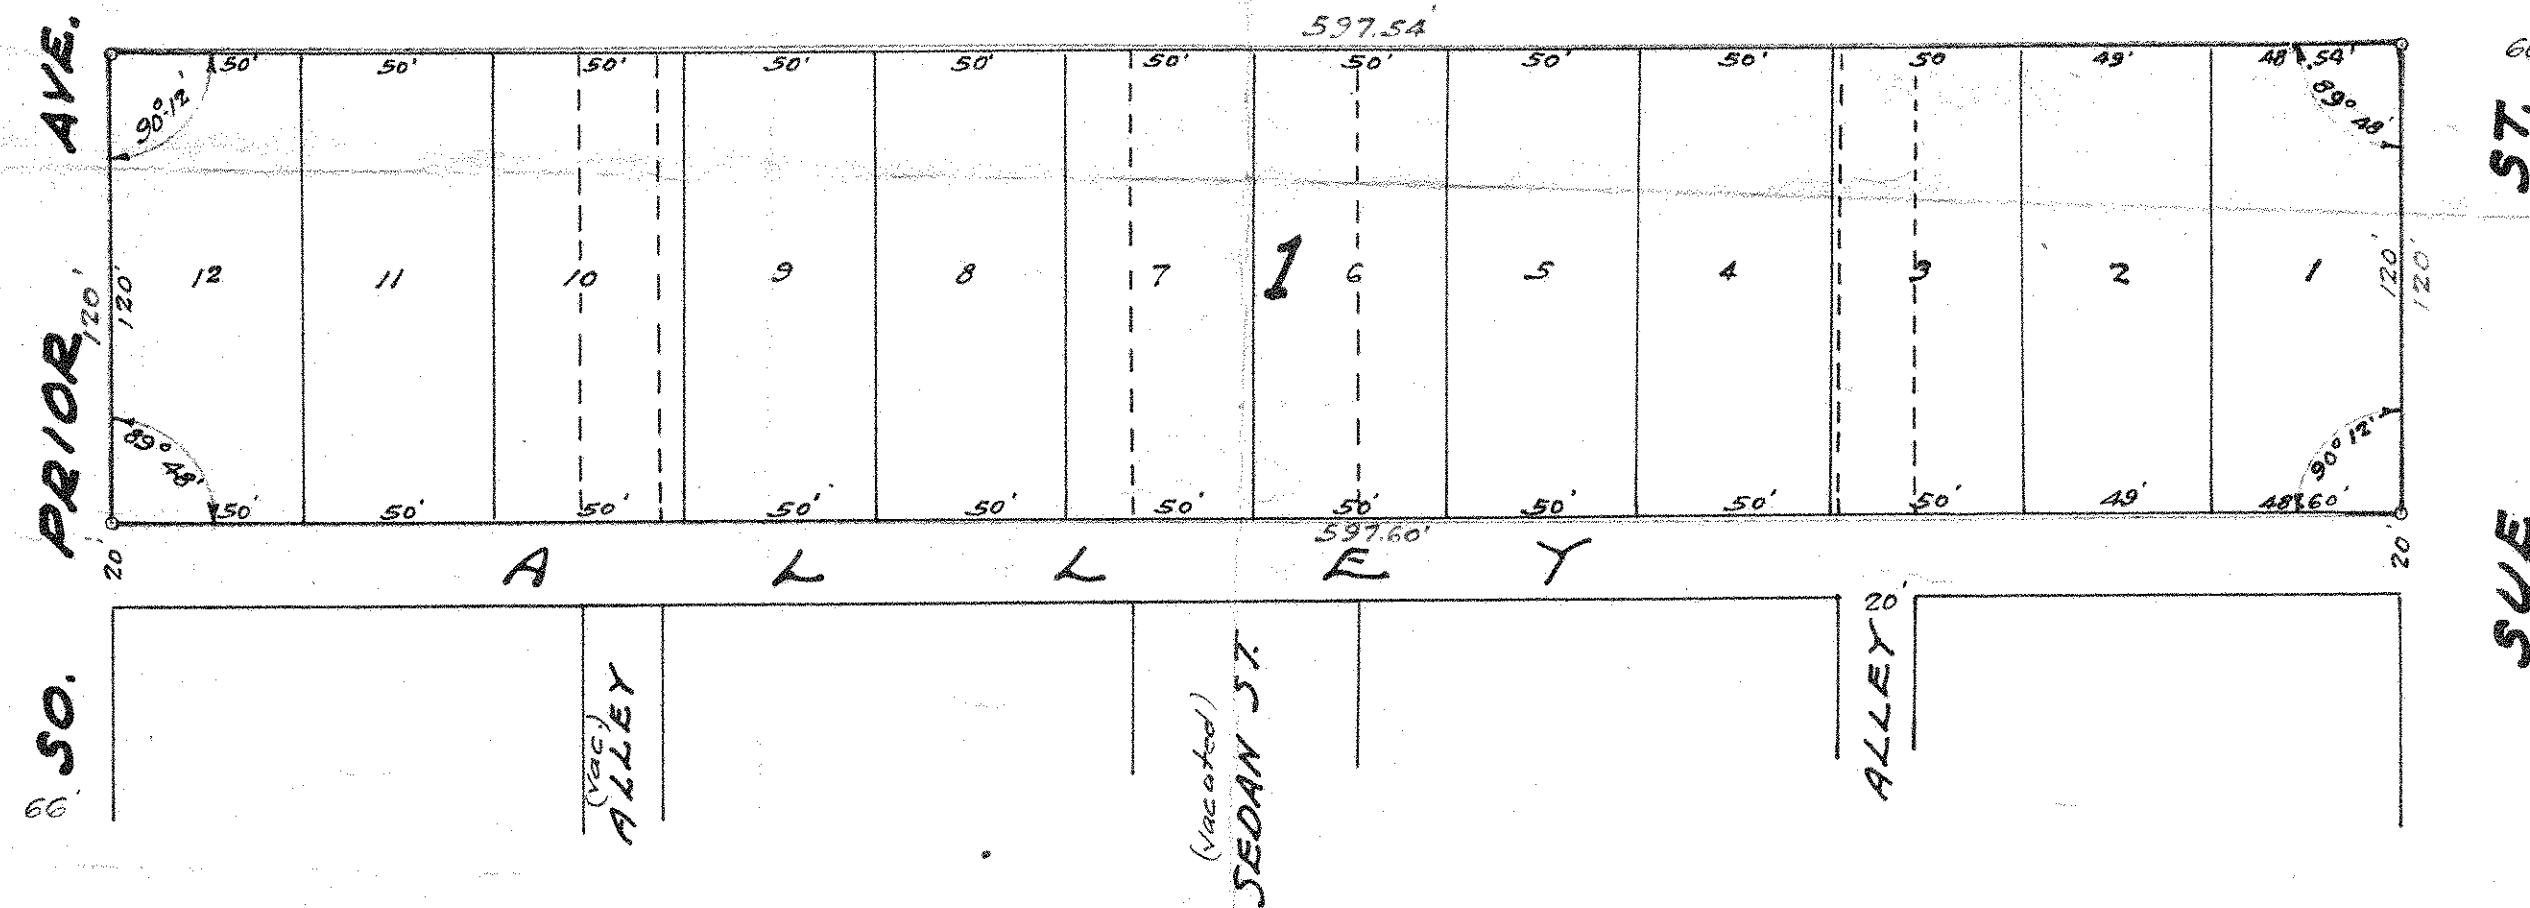 597.54'
50' 50' 50' 50' 50' 50' 50' 50' 50' 50 49' 48.54'
90°-12' 89° 48'
SO. PRIOR AVE.
SUE ST.
120' 120'
12 11 10 9 8 7 1 6 5 4 3 2 1
120' 120'
89° 48' 90° 12'
50' 50' 50' 50' 50' 50' 50' 50' 50' 50' 49' 48.60'
597.60'
20' ALLEY 20'
20'
(vac.)
ALLEY
(vacated)
SEDAN ST.
ALLEY
66'